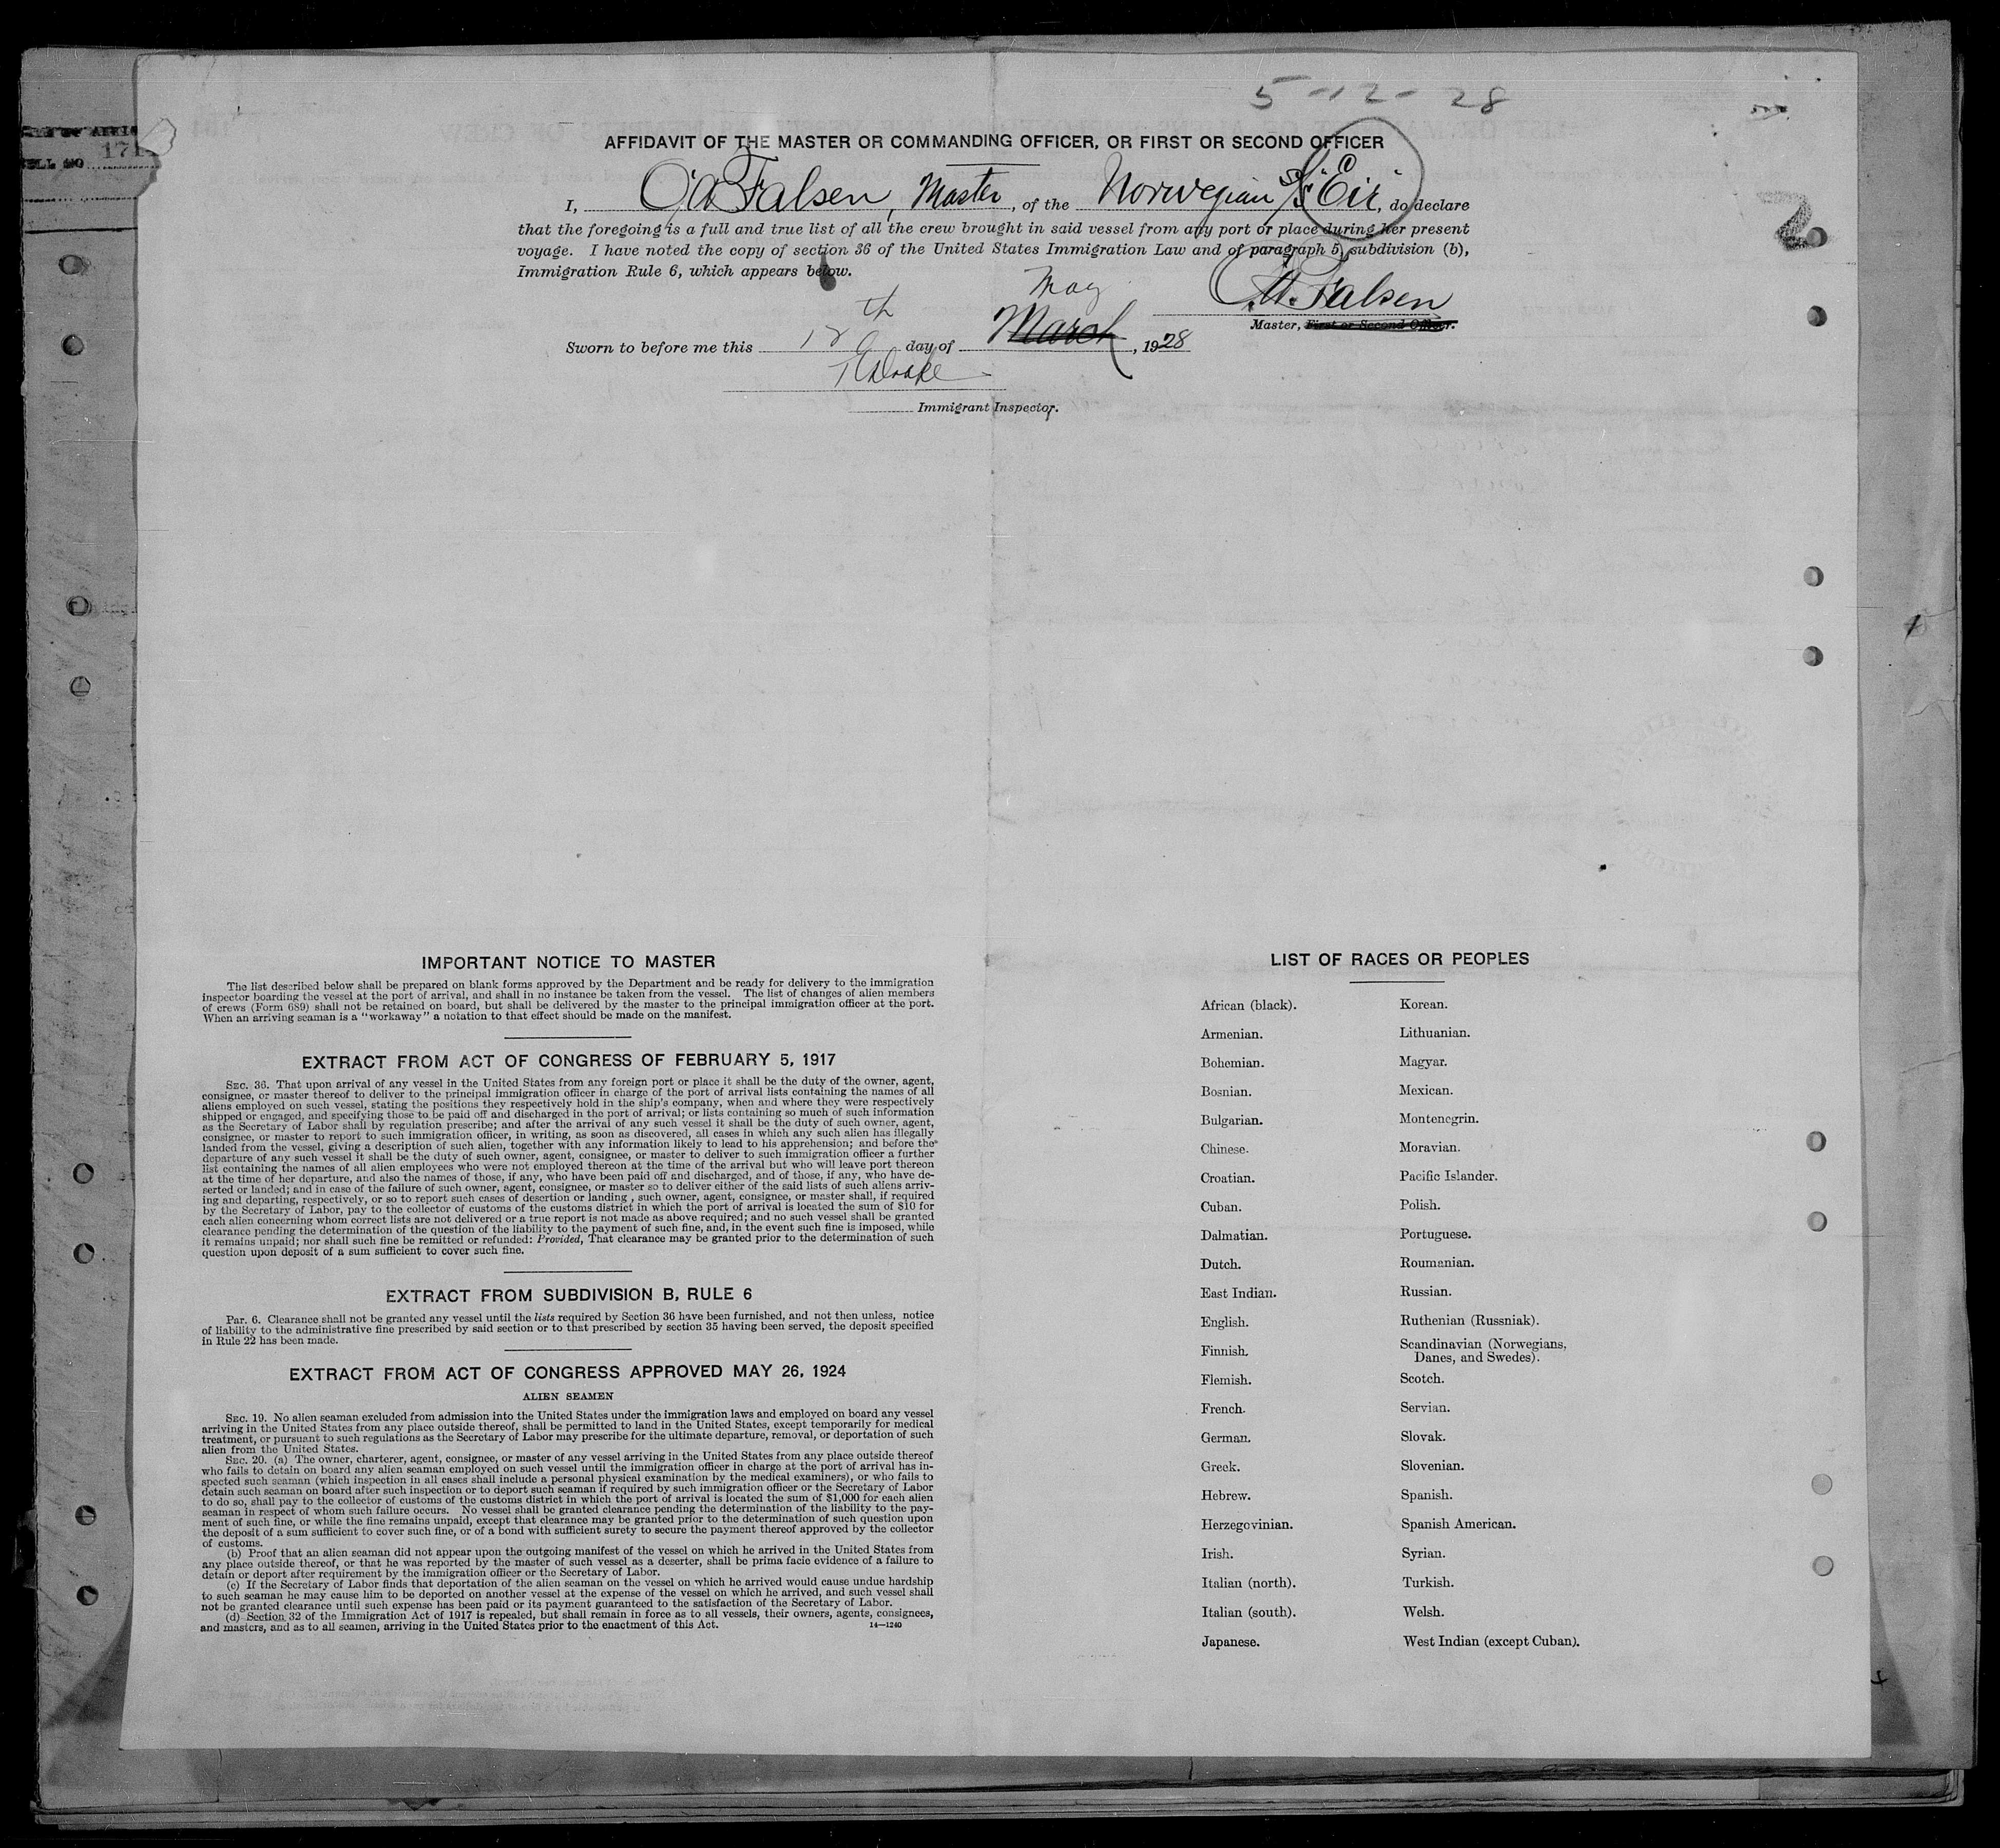 5-12-28
AFFIDAVIT OF THE MASTER OR COMMANDING OFFICER, OR FIRST OR SECOND OFFICER
I, Falsen, Master, of the Norwegian S/S "Eir", do declare
that the foregoing is a full and true list of all the crew brought in said vessel from any port or place during her present
voyage. I have noted the copy of section 36 of the United States Immigration Law and of paragraph 5, subdivision (b),
Immigration Rule 6, which appears below.
Falsen
Master, First or Second Officer.
May
Sworn to before me this 12th day of March, 1928
Immigrant Inspector.
171
2
IMPORTANT NOTICE TO MASTER
The list described below shall be prepared on blank forms approved by the Department and be ready for delivery to the immigration
inspector boarding the vessel at the port of arrival, and shall in no instance be taken from the vessel. The list of changes of alien members
of crews (Form 689) shall not be retained on board, but shall be delivered by the master to the principal immigration officer at the port.
When an arriving seaman is a "workaway" a notation to that effect should be made on the manifest.
EXTRACT FROM ACT OF CONGRESS OF FEBRUARY 5, 1917
SEC. 36. That upon arrival of any vessel in the United States from any foreign port or place it shall be the duty of the owner, agent,
consignee, or master thereof to deliver to the principal immigration officer in charge of the port of arrival lists containing the names of all
aliens employed on such vessel, stating the positions they respectively hold in the ship's company, when and where they were respectively
shipped or engaged, and specifying those to be paid off and discharged in the port of arrival; or lists containing so much of such information
as the Secretary of Labor shall by regulation prescribe; and after the arrival of any such vessel it shall be the duty of such owner, agent,
consignee, or master to report to such immigration officer, in writing, as soon as discovered, all cases in which any such alien has illegally
landed from the vessel, giving a description of such alien, together with any information likely to lead to his apprehension; and before the
departure of any such vessel it shall be the duty of such owner, agent, consignee, or master to deliver to such immigration officer a further
list containing the names of all alien employees who were not employed thereon at the time of the arrival but who will leave port thereon
at the time of her departure, and also the names of those, if any, who have been paid off and discharged, and of those, if any, who have de-
serted or landed; and in case of the failure of such owner, agent, consignee, or master so to deliver either of the said lists of such aliens arriv-
ing and departing, respectively, or so to report such cases of desertion or landing , such owner, agent, consignee, or master shall, if required
by the Secretary of Labor, pay to the collector of customs of the customs district in which the port of arrival is located the sum of $10 for
each alien concerning whom correct lists are not delivered or a true report is not made as above required; and no such vessel shall be granted
clearance pending the determination of the question of the liability to the payment of such fine, and, in the event such fine is imposed, while
it remains unpaid; nor shall such fine be remitted or refunded: Provided, That clearance may be granted prior to the determination of such
question upon deposit of a sum sufficient to cover such fine.
EXTRACT FROM SUBDIVISION B, RULE 6
Par. 6. Clearance shall not be granted any vessel until the lists required by Section 36 have been furnished, and not then unless, notice
of liability to the administrative fine prescribed by said section or to that prescribed by section 35 having been served, the deposit specified
in Rule 22 has been made.
EXTRACT FROM ACT OF CONGRESS APPROVED MAY 26, 1924
ALIEN SEAMEN
SEC. 19. No alien seaman excluded from admission into the United States under the immigration laws and employed on board any vessel
arriving in the United States from any place outside thereof, shall be permitted to land in the United States, except temporarily for medical
treatment, or pursuant to such regulations as the Secretary of Labor may prescribe for the ultimate departure, removal, or deportation of such
alien from the United States.
SEC. 20. (a) The owner, charterer, agent, consignee, or master of any vessel arriving in the United States from any place outside thereof
who fails to detain on board any alien seaman employed on such vessel until the immigration officer in charge at the port of arrival has in-
spected such seaman (which inspection in all cases shall include a personal physical examination by the medical examiners), or who fails to
detain such seaman on board after such inspection or to deport such seaman if required by such immigration officer or the Secretary of Labor
to do so, shall pay to the collector of customs of the customs district in which the port of arrival is located the sum of $1,000 for each alien
seaman in respect of whom such failure occurs. No vessel shall be granted clearance pending the determination of the liability to the pay-
ment of such fine, or while the fine remains unpaid, except that clearance may be granted prior to the determination of such question upon
the deposit of a sum sufficient to cover such fine, or of a bond with sufficient surety to secure the payment thereof approved by the collector
of customs.
(b) Proof that an alien seaman did not appear upon the outgoing manifest of the vessel on which he arrived in the United States from
any place outside thereof, or that he was reported by the master of such vessel as a deserter, shall be prima facie evidence of a failure to
detain or deport after requirement by the immigration officer or the Secretary of Labor.
(c) If the Secretary of Labor finds that deportation of the alien seaman on the vessel on which he arrived would cause undue hardship
to such seaman he may cause him to be deported on another vessel at the expense of the vessel on which he arrived, and such vessel shall
not be granted clearance until such expense has been paid or its payment guaranteed to the satisfaction of the Secretary of Labor.
(d) Section 32 of the Immigration Act of 1917 is repealed, but shall remain in force as to all vessels, their owners, agents, consignees,
and masters, and as to all seamen, arriving in the United States prior to the enactment of this Act.
14—1240
LIST OF RACES OR PEOPLES
African (black).
Armenian.
Bohemian.
Bosnian.
Bulgarian.
Chinese.
Croatian.
Cuban.
Dalmatian.
Dutch.
East Indian.
English.
Finnish.
Flemish.
French.
German.
Greek.
Hebrew.
Herzegovinian.
Irish.
Italian (north).
Italian (south).
Japanese.
Korean.
Lithuanian.
Magyar.
Mexican.
Montenegrin.
Moravian.
Pacific Islander.
Polish.
Portuguese.
Roumanian.
Russian.
Ruthenian (Russniak).
Scandinavian (Norwegians,
Danes, and Swedes).
Scotch.
Servian.
Slovak.
Slovenian.
Spanish.
Spanish American.
Syrian.
Turkish.
Welsh.
West Indian (except Cuban).